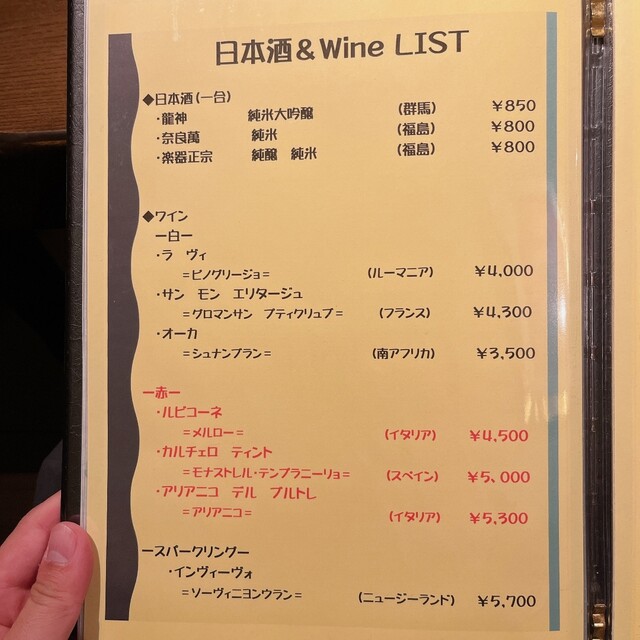 日本酒&Wine LIST
◆日本酒(一合)
・龍神 純米大吟醸 (群馬) ¥850
・奈良萬 純米 (福島) ¥800
・楽器正宗 純醸 純米 (福島) ¥800
◆ワイン
ー白ー
・ラ ヴィ
=ピノグリージョ= (ルーマニア) ¥4,000
・サン モン エリタージュ
=グロマンサン プティクリュブ= (フランス) ¥4,300
・オーカ
=シュナンブラン= (南アフリカ) ¥3,500
ー赤ー
・ルビコーネ
=メルロー= (イタリア) ¥4,500
・カルチェロ ティント
=モナストレル・テンプラニーリョ= (スペイン) ¥5、000
・アリアニコ デル ブルトレ
=アリアニコ= (イタリア) ¥5,300
ースパークリングー
・インヴィーヴォ
=ソーヴィニヨンウラン= (ニュージーランド) ¥5,700